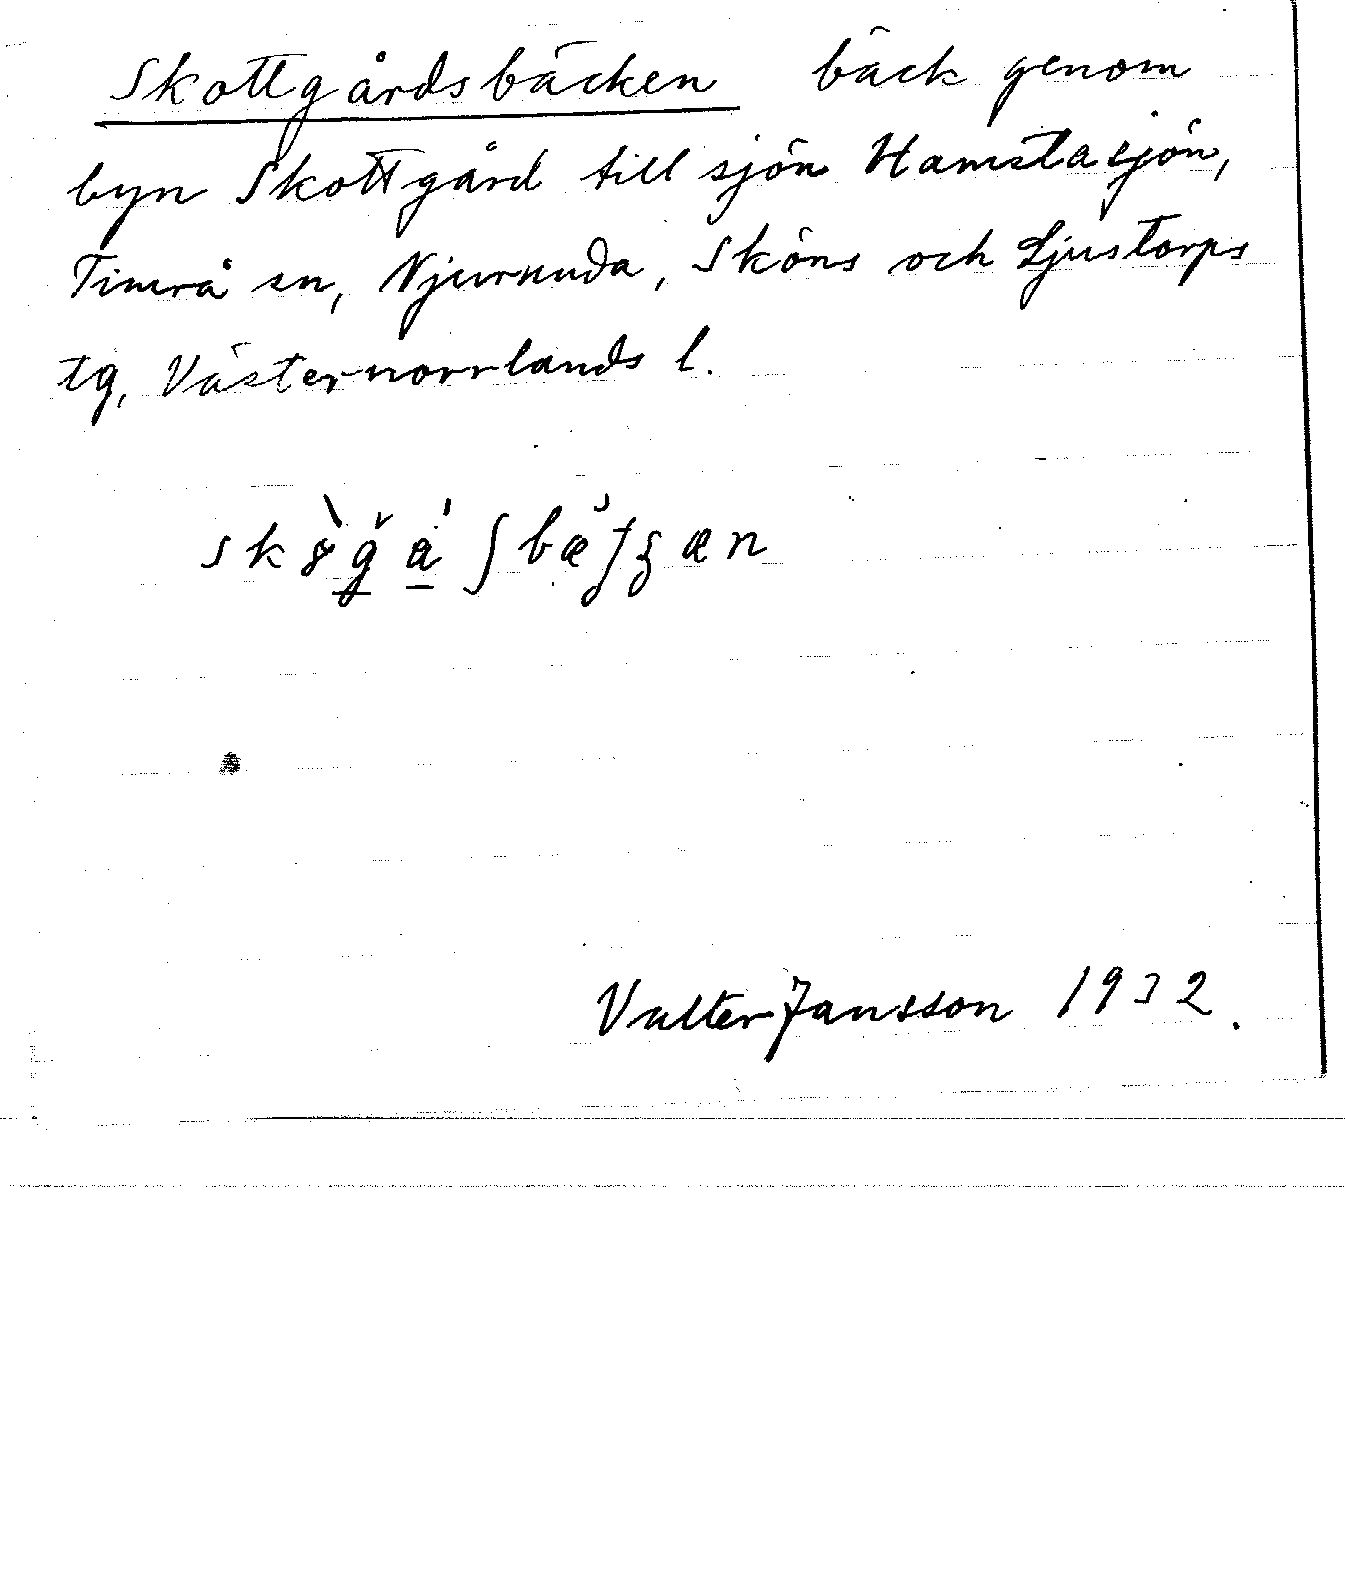 Skottgårdsbäcken bäck genom
byn Skottgård till sjön Hamstasjön,
Timrå sn, Njurunda, Sköns och Ljustorps
tg, Västernorrlands l.
Valter Jansson 1932.